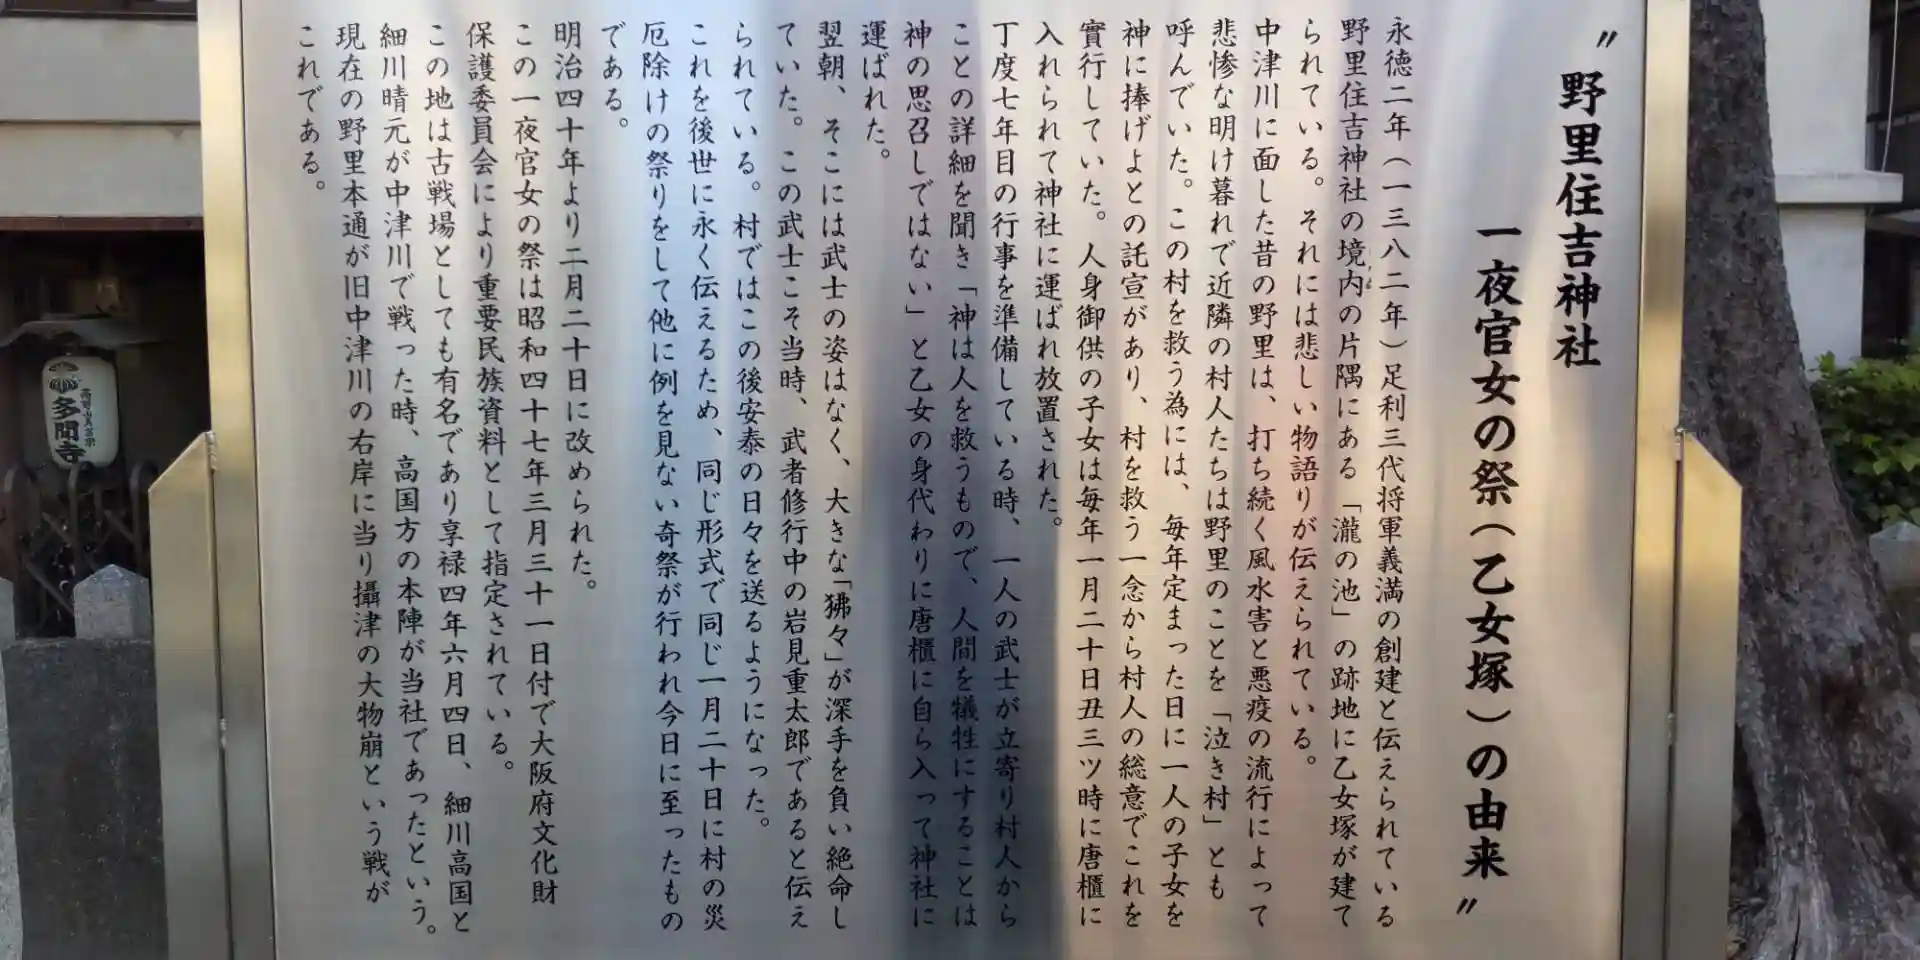 〃野里住吉神社
一夜官女の祭（乙女塚）の由来〃
永徳二年（一三八二年）足利三代将軍義満の創建と伝えられている
野里住吉神社の境内の片隅にある「瀧の池」の跡地に乙女塚が建て
られている。それには悲しい物語りが伝えられている。
中津川に面した昔の野里は、打ち続く風水害と悪疫の流行によって
悲惨な明け暮れで近隣の村人たちは野里のことを「泣き村」とも
呼んでいた。この村を救う為には、毎年定まった日に一人の子女を
神に捧げよとの託宣があり、村を救う一念から村人の総意でこれを
實行していた。人身御供の子女は毎年一月二十日丑三ツ時に唐櫃に
入れられて神社に運ばれ放置された。
丁度七年目の行事を準備している時、一人の武士が立寄り村人から
ことの詳細を聞き「神は人を救うもので、人間を犠牲にすることは
神の思召しではない」と乙女の身代わりに唐櫃に自ら入って神社に
運ばれた。
翌朝、そこには武士の姿はなく、大きな「狒々」が深手を負い絶命し
ていた。この武士こそ当時、武者修行中の岩見重太郎であると伝え
られている。村ではこの後安泰の日々を送るようになった。
これを後世に永く伝えるため、同じ形式で同じ一月二十日に村の災
厄除けの祭りをして他に例を見ない奇祭が行われ今日に至ったもの
である。
明治四十年より二月二十日に改められた。
この一夜官女の祭は昭和四十七年三月三十一日付で大阪府文化財
保護委員会により重要民族資料として指定されている。
この地は古戦場としても有名であり享禄四年六月四日、細川高国と
細川晴元が中津川で戦った時、高国方の本陣が当社であったという。
現在の野里本通が旧中津川の右岸に当り攝津の大物崩という戦が
これである。
多聞寺